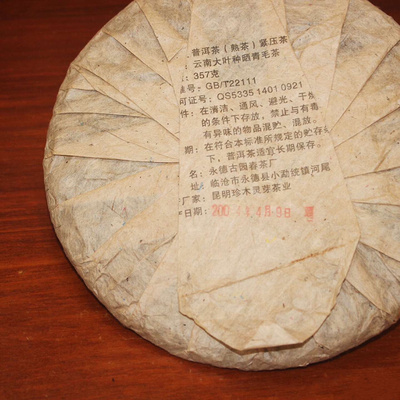 普洱茶（熟茶）紧压茶
：云南大叶种晒青毛茶
：357克
号：GB/T22111
可证号：QS5335 1401 0921
件：在清洁、通风、避光、干燥
的条件下存放，禁止与有毒
有异味的物品混贮、混放。
期：在符合本标准所规定的贮存
下，普洱茶适宜长期保存。
名：永德古园春茶厂
址：临沧市永德县小勐统镇河尾
厂家：昆明珍木灵芽茶业
日期：200 4月9日